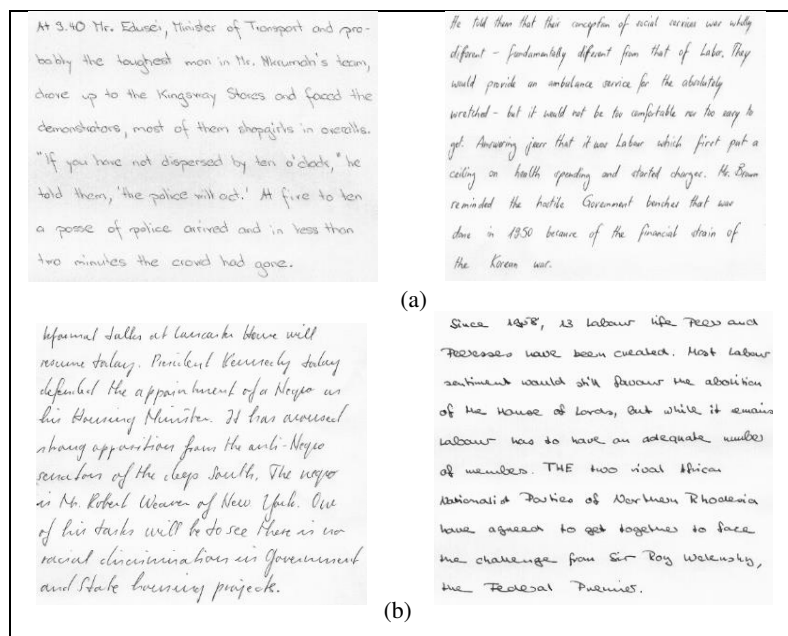 At 9.40 Mr. Edusei, Minister of Transport and pro-
bably the toughest man in Mr. Nkrumah's team,
drove up to the Kingsway Stores and faced the
demonstrators, most of them shopgirls in overalls.
"If you have not dispersed by ten o'clock," he
told them, 'the police will act.' At five to ten
a posse of police arrived and in less than
two minutes the crowd had gone.
He told them that their conception of social services was wholly
different - fundamentally different from that of Labor. They
would provide an ambulance service for the absolutely
wretched - but it would not be too comfortable nor too easy to
get. Answering jeers that it was Labour which first put a
ceiling on health spending and started charges. Mr. Brown
reminded the hostile Government benches that was
done in 1950 because of the financial strain of
the Korean war.
(a)
Informal talks at Lancaster House will
resume today. President Kennedy today
defended the appointment of a Negro as
his Housing Minister. It has aroused
strong opposition from the anti-Negro
senators of the deep South. The negro
is Mr. Robert Weaver of New York. One
of his tasks will be to see there is no
racial discrimination in Government
and State housing projects.
Since 1958, 13 Labour life Peers and
Peeresses have been created. Most Labour
sentiment would still favour the abolition
of the House of Lords, but while it remains
Labour has to have an adequate number
of members. THE two rival African
Nationalist Parties of Northern Rhodesia
have agreed to get together to face
the challenge from Sir Roy Welensky,
the Federal Premier.
(b)